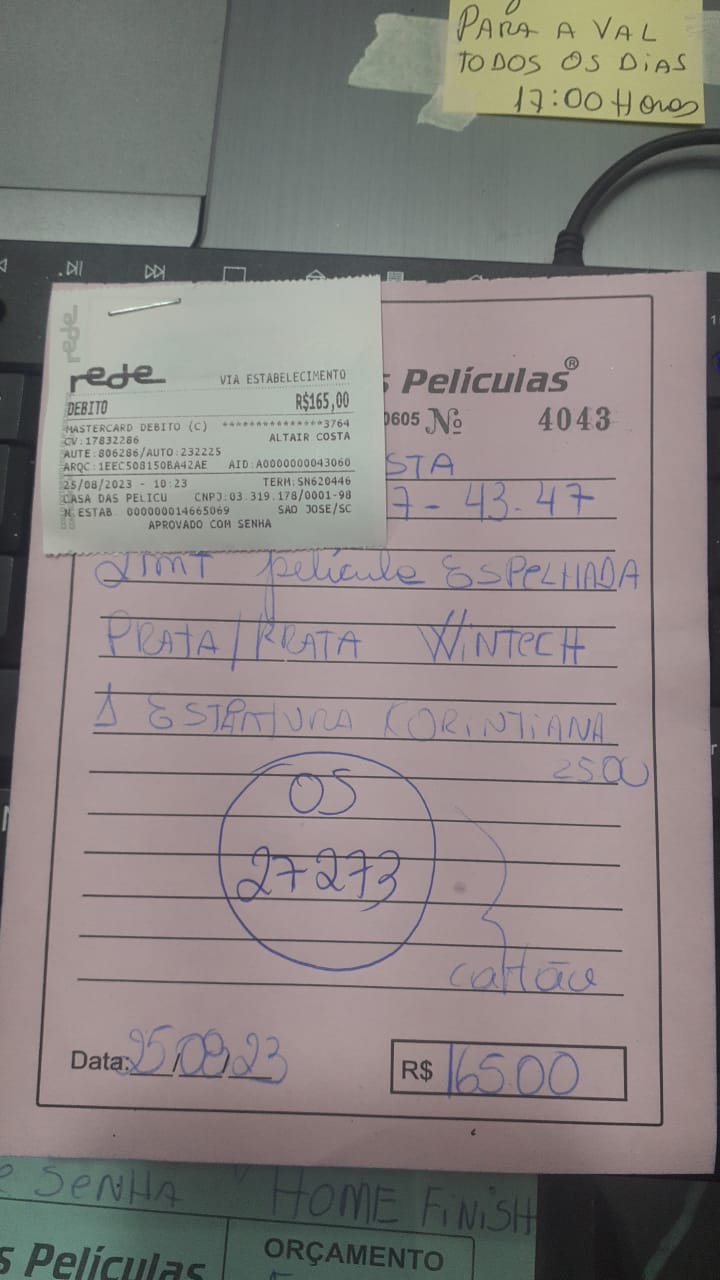 PARA A VAL
TODOS OS DIAS
17:00 Horas
rede
rede
VIA ESTABELECIMENTO
DEBITO R$165,00
MASTERCARD DEBITO (C) ***************3764
CV:17832286 ALTAIR COSTA
AUTE:806286/AUTO:232225
ARQC:1EEC508150BA42AE AID:A0000000043060
25/08/2023 - 10:23 TERM:SN620446
CASA DAS PELICU CNPJ:03.319.178/0001-98
N.ESTAB 000000014665069 SAO JOSE/SC
APROVADO COM SENHA
s Películas®
0605 Nº 4043
STA
7-43.47
película ESPELHADA
PRATA/PRATA WINTECH
1 KORINTIANA
2500
OS
27273
cartão
Data: 25/08/23
R$ 165.00
SENHA HOME FINISH
s Películas
ORÇAMENTO